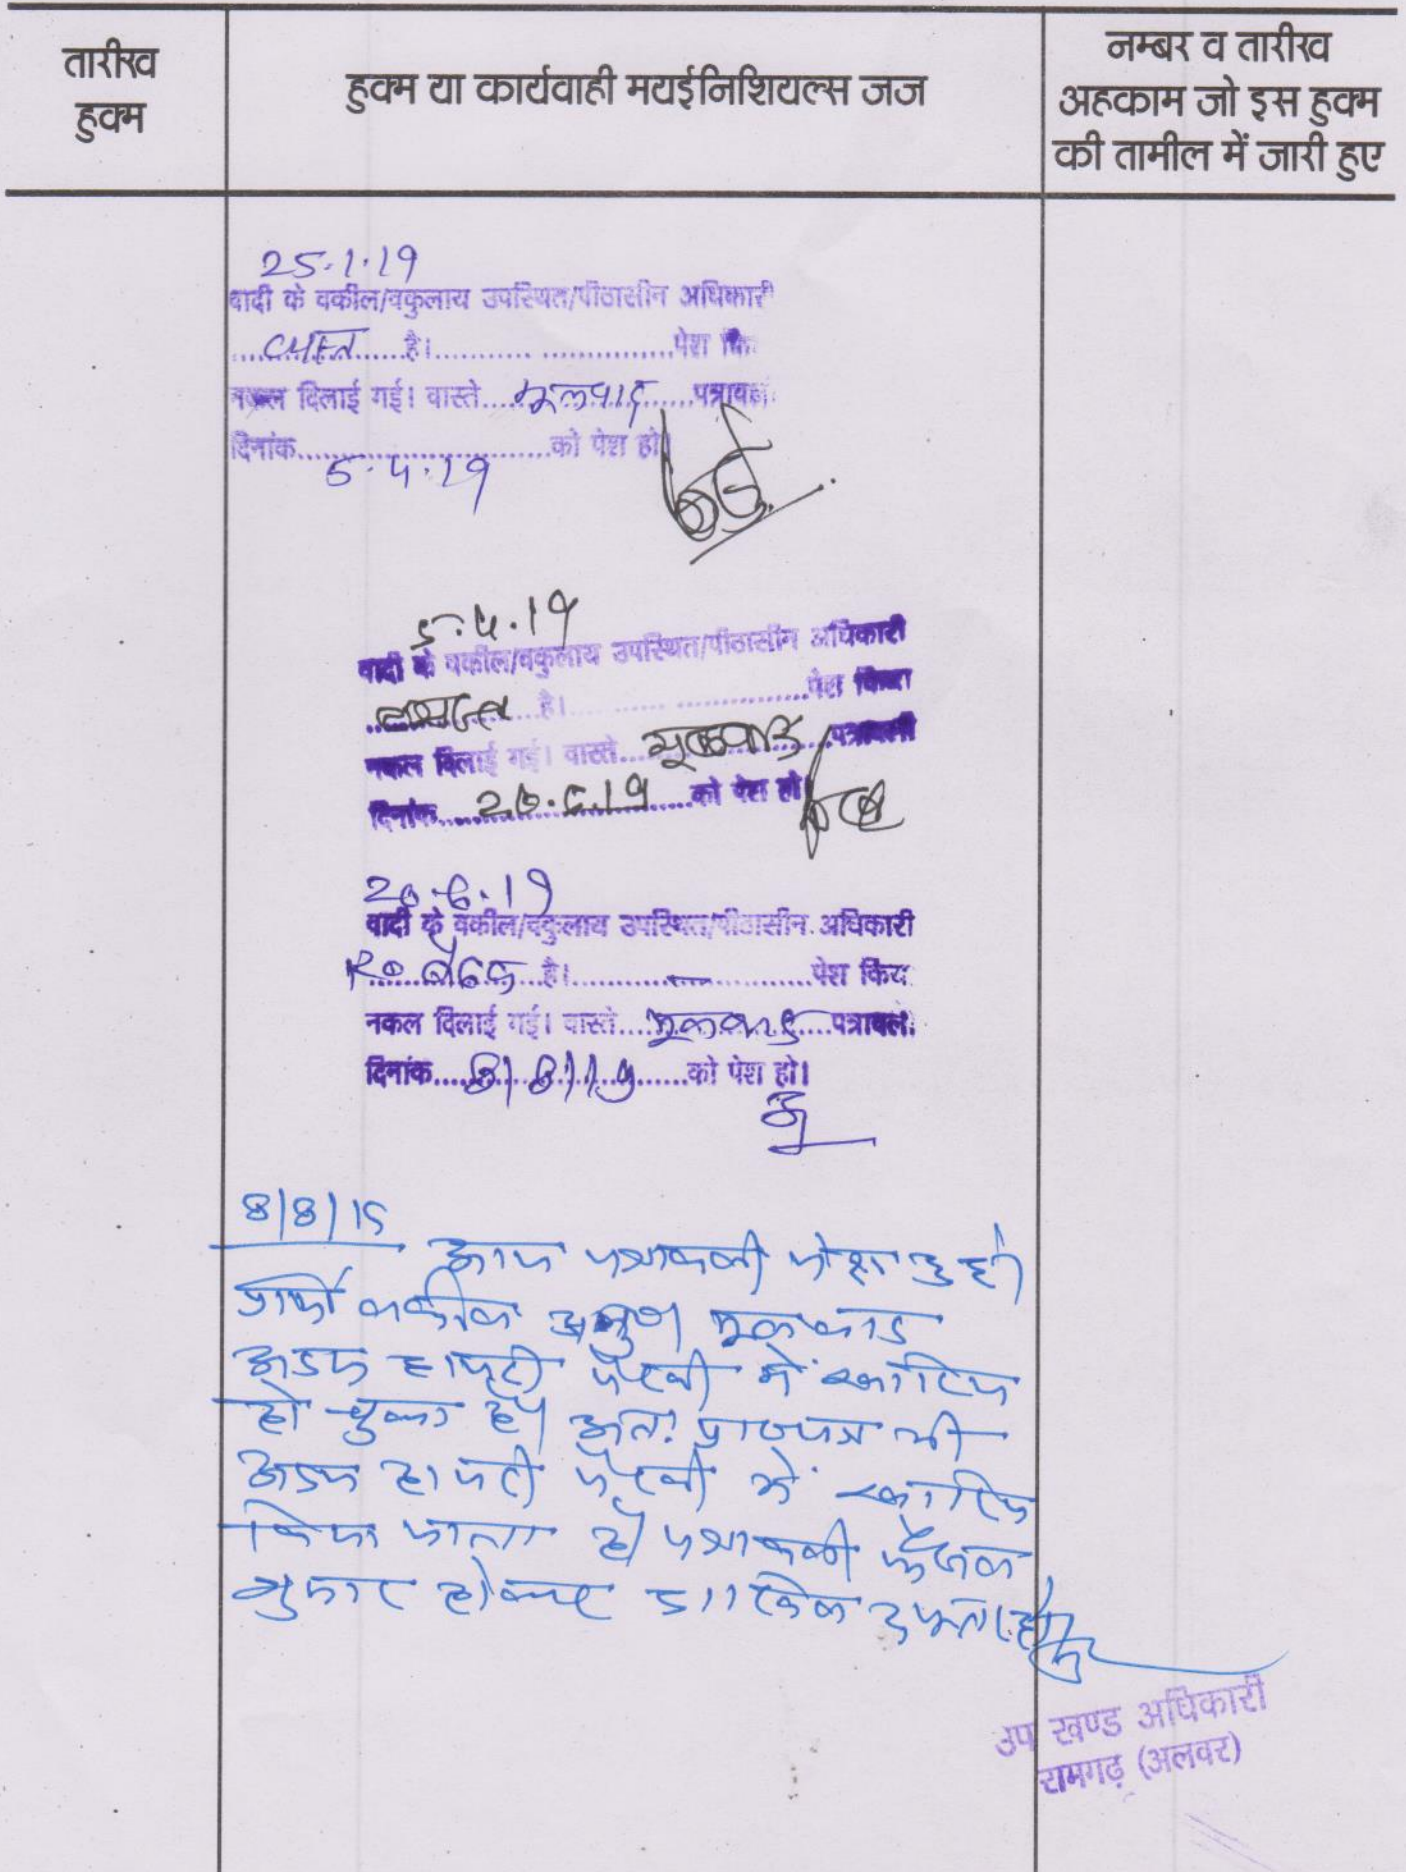 तारीख
हुक्म
हुक्म या कार्यवाही मयईनिशियल्स जज
नम्बर व तारीख
अहकाम जो इस हुक्म
की तामील में जारी हुए
25.1.19
वादी के वकील/वकुलाय उपस्थित/पीठासीन अधिकारी
है। पेश
नकल दिलाई गई। वास्ते मूलवाद पत्रावली
दिनांक को पेश हो।
5.4.19
5.4.19
वादी के वकील/वकुलाय उपस्थित/पीठासीन अधिकारी
है। पेश किया
नकल दिलाई गई। वास्ते मूलवाद पत्रावली
दिनांक 20.6.19 को पेश हो।
20.6.19
वादी के वकील/वकुलाय उपस्थित/पीठासीन अधिकारी
है। पेश किय
नकल दिलाई गई। वास्ते मूलवाद पत्रावली
दिनांक 8/8/19 को पेश हो।
8/8/19
आज पत्रावली पेश हुई।
प्रार्थी वकील मूलवाद
अदम हाजरी पैरवी में खारिज
हो चुका है। अतः भी
अदम हाजरी पैरवी में खारिज
किया जाता है। पत्रावली फैसल
शुमार होकर दाखिल दफ्तर हो।
उप खण्ड अधिकारी
रामगढ़ (अलवर)